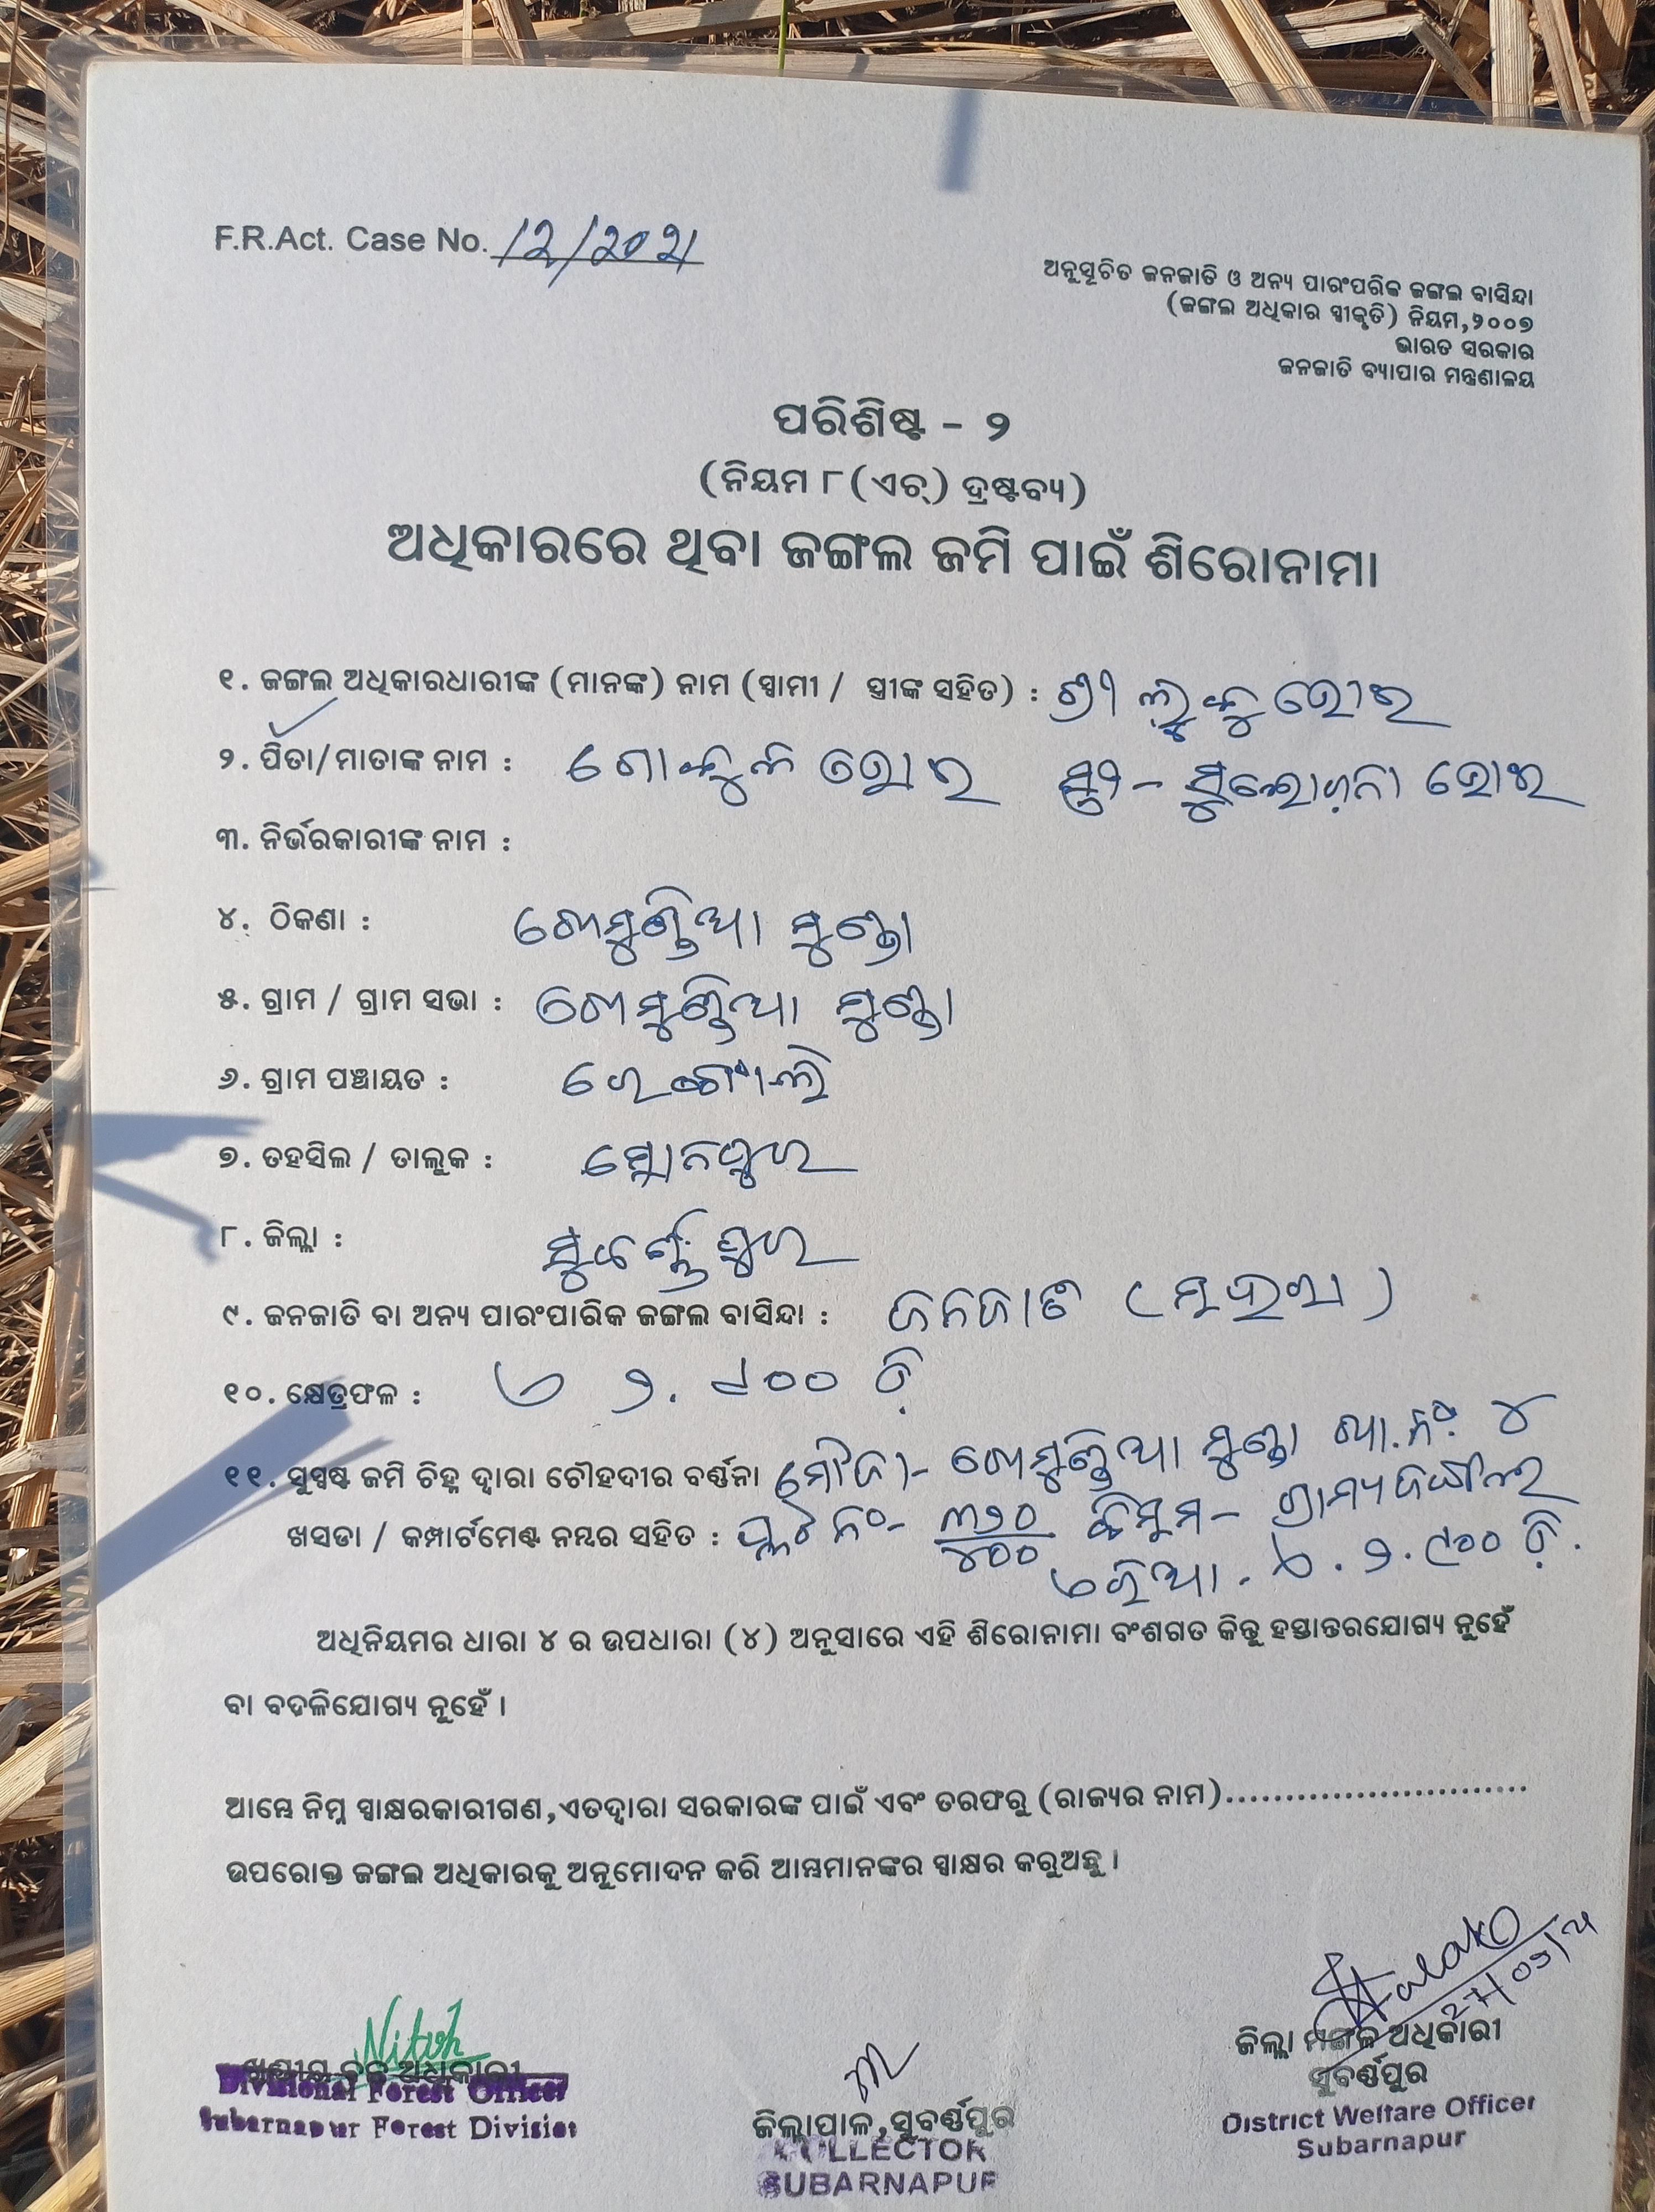 F.R.Act. Case No. 12/2021
ଅନୁସୂଚିତ ଜନଜାତି ଓ ଅନ୍ୟ ପାରଂପରିକ ଜଙ୍ଗଲ ବାସିନ୍ଦା
(ଜଙ୍ଗଲ ଅଧିକାର ସ୍ୱୀକୃତି) ନିୟମ,୨୦୦୭
ଭାରତ ସରକାର
ଜନଜାତି ବ୍ୟାପାର ମନ୍ତ୍ରଣାଳୟ
ପରିଶିଷ୍ଟ - ୨
(ନିୟମ ୮(ଏଚ୍) ଦ୍ରଷ୍ଟବ୍ୟ)
ଅଧିକାରରେ ଥିବା ଜଙ୍ଗଲ ଜମି ପାଇଁ ଶିରୋନାମା
୧. ଜଙ୍ଗଲ ଅଧିକାରଧାରୀଙ୍କ (ମାନଙ୍କ) ନାମ (ସ୍ୱାମୀ / ସ୍ତ୍ରୀଙ୍କ ସହିତ) : ଶ୍ରୀ ଭୋଇ
୨. ପିତା/ମାତାଙ୍କ ନାମ : ଭୋଇ ସ୍ତ୍ରୀ - ସୁଲୋଚନା ଭୋଇ
୩. ନିର୍ଭରକାରୀଙ୍କ ନାମ :
୪. ଠିକଣା : ଖେମୁଣ୍ଡିଆ ମୁଣ୍ଡା
୫. ଗ୍ରାମ / ଗ୍ରାମ ସଭା : ଖେମୁଣ୍ଡିଆ ମୁଣ୍ଡା
୬. ଗ୍ରାମ ପଞ୍ଚାୟତ :
୭. ତହସିଲ / ତାଲୁକ : ସୋନପୁର
୮. ଜିଲ୍ଲା : ସୁବର୍ଣ୍ଣପୁର
୯. ଜନଜାତି ବା ଅନ୍ୟ ପାରଂପାରିକ ଜଙ୍ଗଲ ବାସିନ୍ଦା : ଜନଜାତି
୧୦. କ୍ଷେତ୍ରଫଳ : ଏ ୨.୯୦୦ ଡ଼ି
୧୧. ସୁସ୍ପଷ୍ଟ ଜମି ଚିହ୍ନ ଦ୍ୱାରା ଚୌହଦୀର ବର୍ଣ୍ଣନା ମୌଜା - ଖେମୁଣ୍ଡିଆ ମୁଣ୍ଡା ଖା.ନଂ ୪
ଖସଡା / କମ୍ପାର୍ଟମେଣ୍ଟ ନମ୍ବର ସହିତ : ପ୍ଲଟ ନଂ - ୩୨୦/୪୦୦ କିସମ - ଗ୍ରାମ୍ୟଜଙ୍ଗଲ
ଏରିଆ - ଏ. ୨.୯୦୦ ଡ଼ି.
ଅଧିନିୟମର ଧାରା ୪ ର ଉପଧାରା (୪) ଅନୁସାରେ ଏହି ଶିରୋନାମା ବଂଶଗତ କିନ୍ତୁ ହସ୍ତାନ୍ତରଯୋଗ୍ୟ ନୁହେଁ
ବା ବଦଳିଯୋଗ୍ୟ ନୁହେଁ ।
ଆମ୍ଭେ ନିମ୍ନ ସ୍ୱାକ୍ଷରକାରୀଗଣ,ଏତଦ୍ୱାରା ସରକାରଙ୍କ ପାଇଁ ଏବଂ ତରଫରୁ (ରାଜ୍ୟର ନାମ)..........................
ଉପରୋକ୍ତ ଜଙ୍ଗଲ ଅଧିକାରକୁ ଅନୁମୋଦନ କରି ଆମ୍ଭମାନଙ୍କର ସ୍ୱାକ୍ଷର କରୁଅଛୁ ।
27/03/21
ଜିଲ୍ଲା ମଙ୍ଗଳ ଅଧିକାରୀ
ସୁବର୍ଣ୍ଣପୁର
District Welfare Officer
Subarnapur
Divisional Forest Officer
Subarnapur Forest Division
ଜିଲ୍ଲାପାଳ,ସୁବର୍ଣ୍ଣପୁର
COLLECTOR
SUBARNAPUR